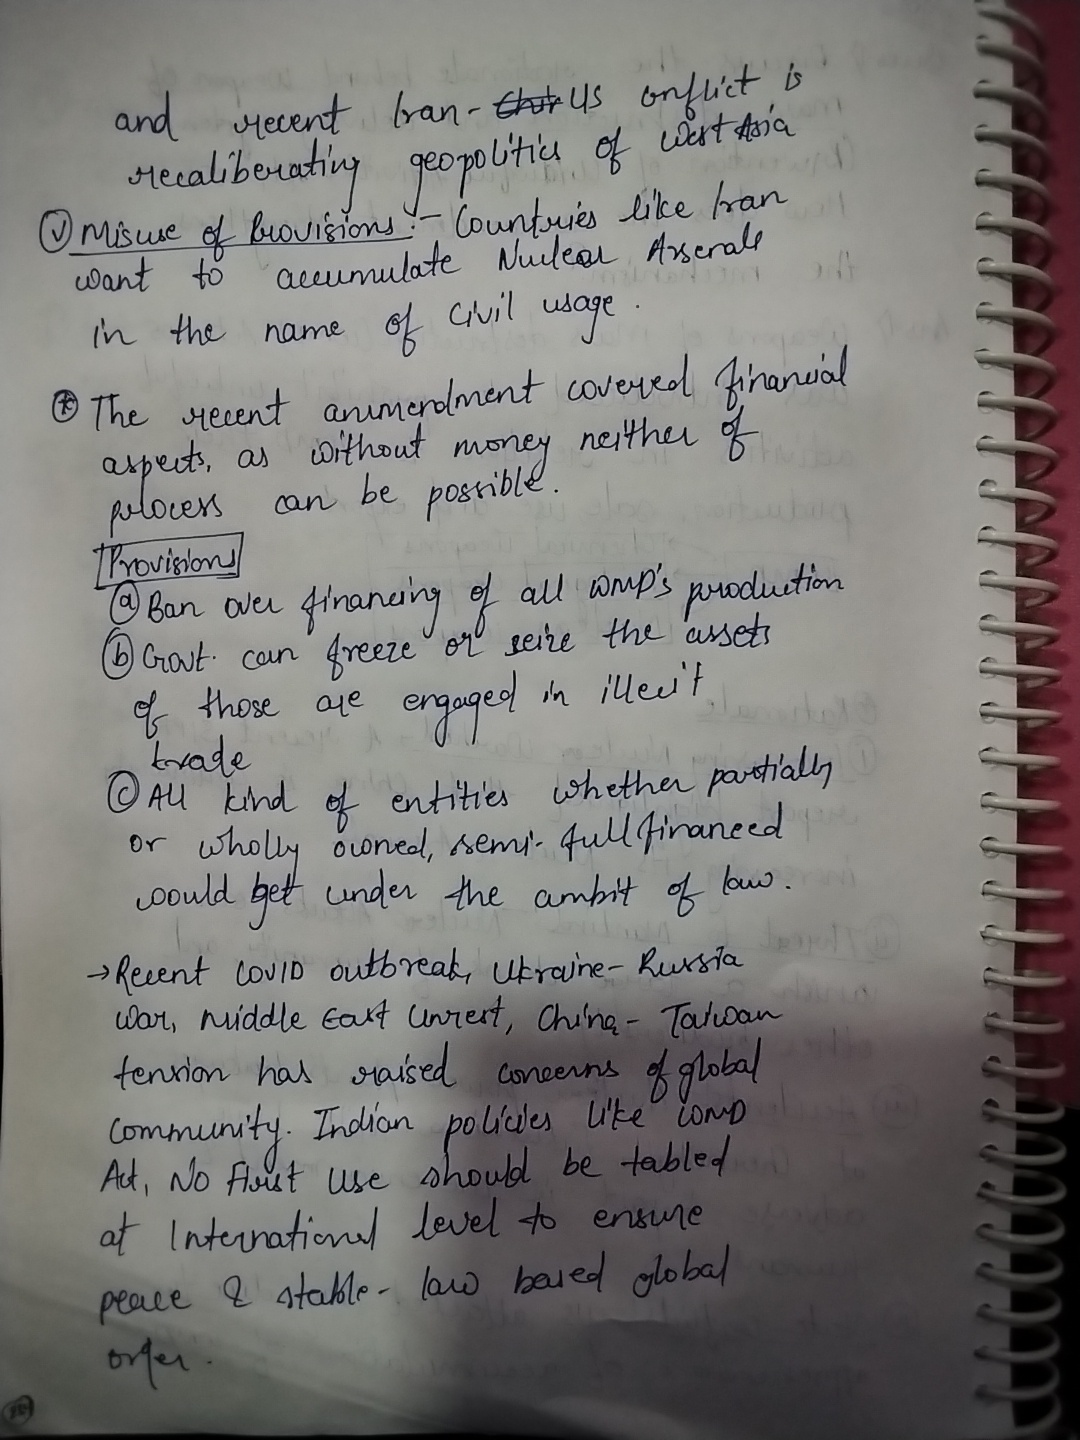 and recent Iran- US conflict is
recaliberating geopolitics of West Asia
(v) Misuse of Provisions:- Countries like Iran
want to accumulate Nuclear Arsenals
in the name of Civil usage.
* The recent ammendment covered financial
aspects, as without money neither of
process can be possible.
Provisions
(a) Ban over financing of all WMD's production
(b) Govt. can freeze or seize the assets
of those are engaged in illecit
trade
(c) All kind of entities whether partially
or wholly owned, semi-full financed
would get under the ambit of law.
→ Recent COVID outbreak, Ukraine-Russia
War, Middle East Unrest, China-Taiwan
tension has raised concerns of global
community. Indian policies like WMD
Act, No First Use should be tabled
at International level to ensure
peace & stable- law based global
order.